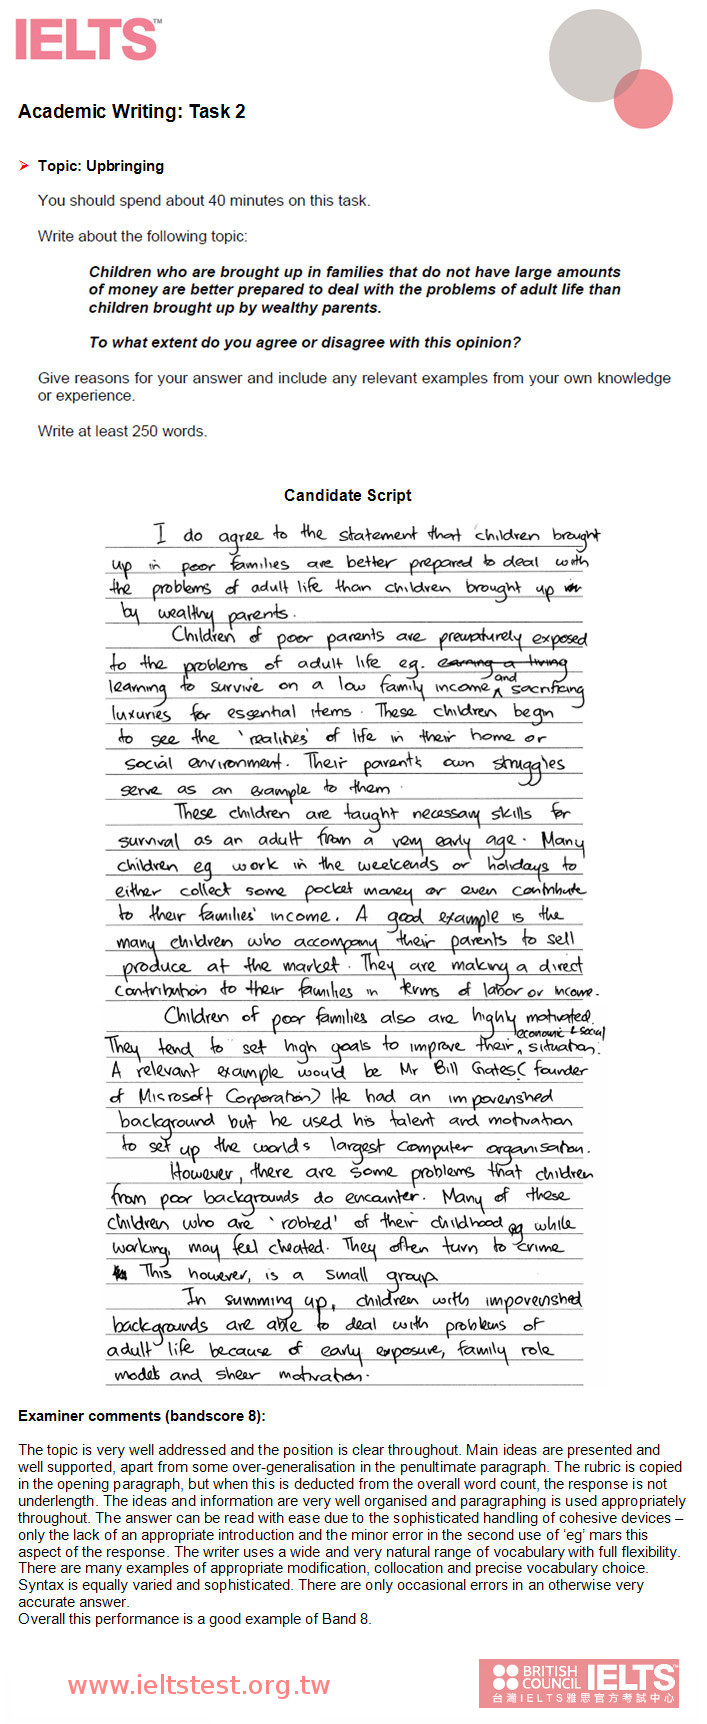 IELTS™
Academic Writing: Task 2
Topic: Upbringing
You should spend about 40 minutes on this task.
Write about the following topic:
Children who are brought up in families that do not have large amounts
of money are better prepared to deal with the problems of adult life than
children brought up by wealthy parents.
To what extent do you agree or disagree with this opinion?
Give reasons for your answer and include any relevant examples from your own knowledge
or experience.
Write at least 250 words.
Candidate Script
I do agree to the statement that children brought
up in poor families are better prepared to deal with
the problems of adult life than children brought up in
by wealthy parents.
Children of poor parents are prematurely exposed
to the problems of adult life eg. earning a living
learning to survive on a low family income and sacrificing
luxuries for essential items. These children begin
to see the 'realities' of life in their home or
social environment. Their parents own struggles
serve as an example to them.
These children are taught necessary skills for
survival as an adult from a very early age. Many
children eg work in the weekends or holidays to
either collect some pocket money or even contribute
to their families' income. A good example is the
many children who accompany their parents to sell
produce at the market. They are making a direct
contribution to their families in terms of labor or income.
Children of poor families also are highly motivated.
They tend to set high goals to improve their economic & social situation.
A relevant example would be Mr Bill Gates (founder
of Microsoft Corporation) He had an impovenshed
background but he used his talent and motivation
to set up the worlds largest computer organisation.
However, there are some problems that children
from poor backgrounds do encounter. Many of these
children who are 'robbed' of their childhood eg while
working, may feel cheated. They often turn to crime
This however, is a small group.
In summing up, children with impovenshed
backgrounds are able to deal with problems of
adult life because of early exposure, family role
models and sheer motivation.
Examiner comments (bandscore 8):
The topic is very well addressed and the position is clear throughout. Main ideas are presented and
well supported, apart from some over-generalisation in the penultimate paragraph. The rubric is copied
in the opening paragraph, but when this is deducted from the overall word count, the response is not
underlength. The ideas and information are very well organised and paragraphing is used appropriately
throughout. The answer can be read with ease due to the sophisticated handling of cohesive devices –
only the lack of an appropriate introduction and the minor error in the second use of 'eg' mars this
aspect of the response. The writer uses a wide and very natural range of vocabulary with full flexibility.
There are many examples of appropriate modification, collocation and precise vocabulary choice.
Syntax is equally varied and sophisticated. There are only occasional errors in an otherwise very
accurate answer.
Overall this performance is a good example of Band 8.
www.ieltstest.org.tw
BRITISH COUNCIL IELTS™
台灣IELTS雅思官方考試中心